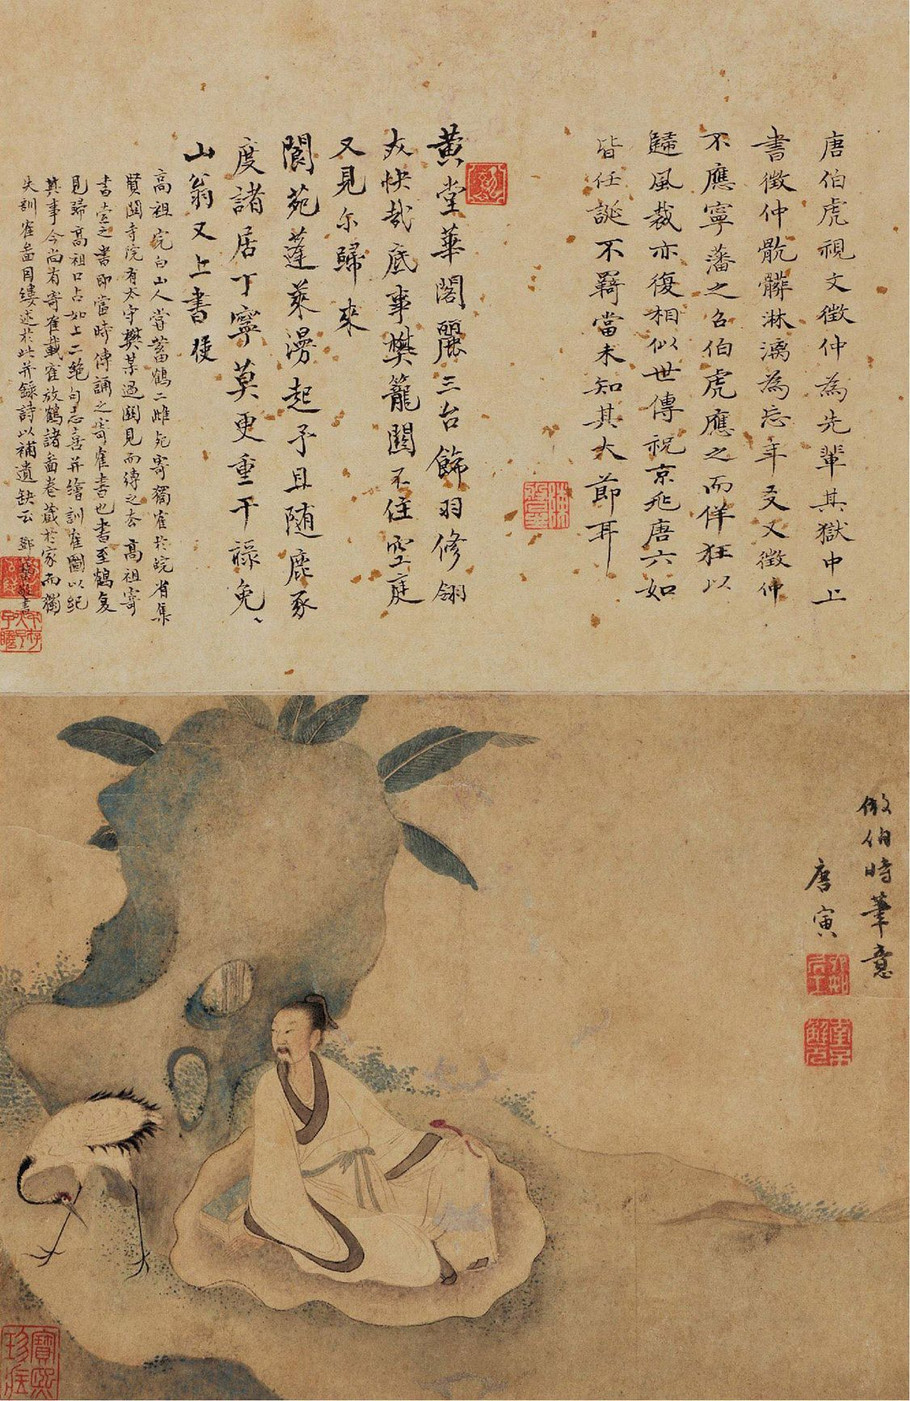 唐伯虎視文徵仲為先輩其獄中上
書徵仲骯髒淋漓為忘年交又徵仲
不應寧藩之召伯虎應之而佯狂以
歸風裁亦復相似世傳祝京兆唐六如
皆任誕不羈當未知其大節耳
黃堂華閣麗三台飾羽修翎
亦快哉底事樊籠關不住空庭
又見尔歸來
閬苑蓬萊漫起予且随鹿豕
度諸居丁寧莫更重干祿免
山翁又上書使
高祖完白山人嘗蓄鶴二雌死寄獨隺於皖省集
賢關寺院有太守樊某過關見而
之去高祖寄
書索之書即當時傳誦之寄隺書也書至鶴復
見歸高祖口占如上二絕句志喜并繪訓隺圖以紀
其事今尚有寄隺載隺放鶴諸畫卷藏於家而獨
失訓隺畫因縷述於此并錄詩以補遺缺云 鄧
倣伯時筆意
唐寅
南京解元
寶熙珍藏